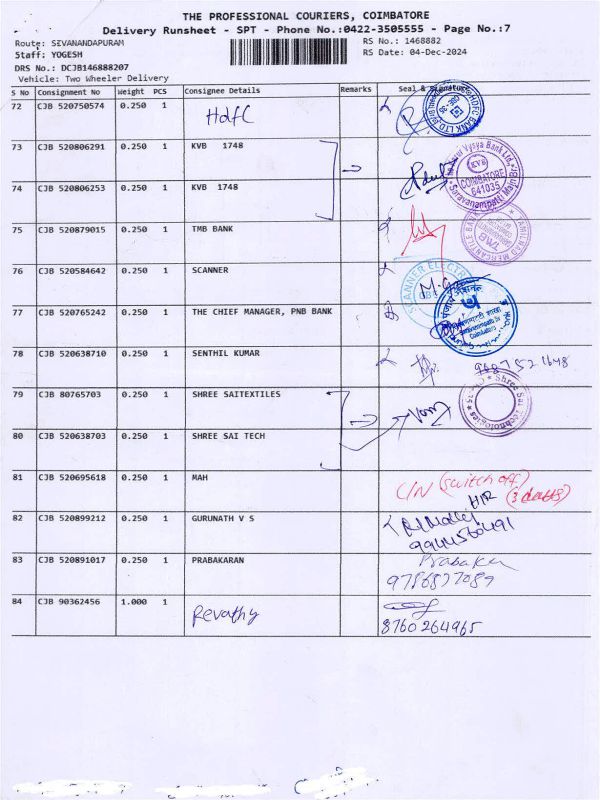 THE PROFESSIONAL COURIERS, COIMBATORE
Delivery Runsheet - SPT - Phone No.:0422-3505555 - Page No.:7
Route: SIVANANDAPURAM RS No.: 1468882
Staff: YOGESH RS Date: 04-Dec-2024
DRS No.: DCJB146888207
Vehicle: Two Wheeler Delivery
S No Consignment No Weight PCS Consignee Details Remarks Seal & Signature
72 CJB 520750574 0.250 1 Hdfc
73 CJB 520806291 0.250 1 KVB 1748
74 CJB 520806253 0.250 1 KVB 1748
75 CJB 520879015 0.250 1 TMB BANK
76 CJB 520584642 0.250 1 SCANNER
77 CJB 520765242 0.250 1 THE CHIEF MANAGER, PNB BANK
78 CJB 520638710 0.250 1 SENTHIL KUMAR
79 CJB 80765703 0.250 1 SHREE SAITEXTILES
80 CJB 520638703 0.250 1 SHREE SAI TECH
81 CJB 520695618 0.250 1 MAH C/N (switch off)
82 CJB 520899212 0.250 1 GURUNATH V S 9944560491
83 CJB 520891017 0.250 1 PRABAKARAN 9786877089
84 CJB 90362456 1.000 1 Revathy 8760264965
HDFC BANK LTD
Vysya Bank Ltd.,
KVB
COIMBATORE
641035
Saravanampatti
TAMILNAD MERCANTILE BANK
TMB
SCANNER ELECTR
Shree Sai Technologies